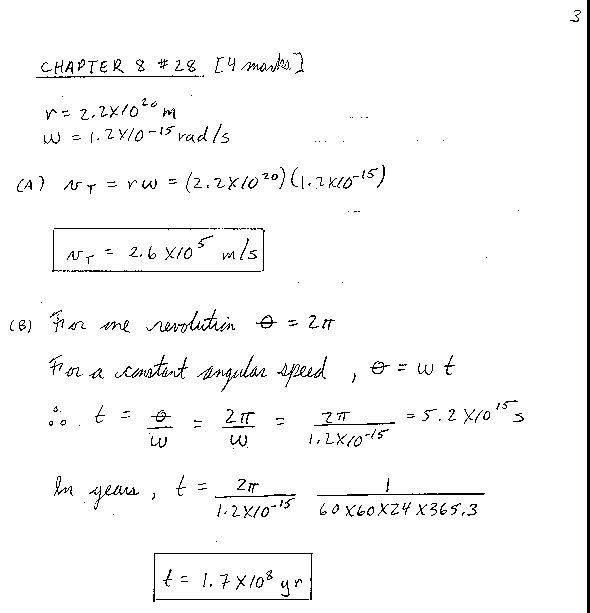 3
CHAPTER 8 #28 [4 marks]
r = 2.2X10²⁰ m
ω = 1.2X10⁻¹⁵ rad/s
(A) v_T = rω = (2.2X10²⁰)(1.2X10⁻¹⁵)
v_T = 2.6 X10⁵ m/s
(B) For one revolution θ = 2π
For a constant angular speed , θ = ωt
∴ t = θ/ω = 2π/ω = 2π/1.2X10⁻¹⁵ = 5.2 X10¹⁵ s
In years , t = 2π/1.2X10⁻¹⁵ 1/60X60X24X365.3
t = 1.7 X10⁸ yr